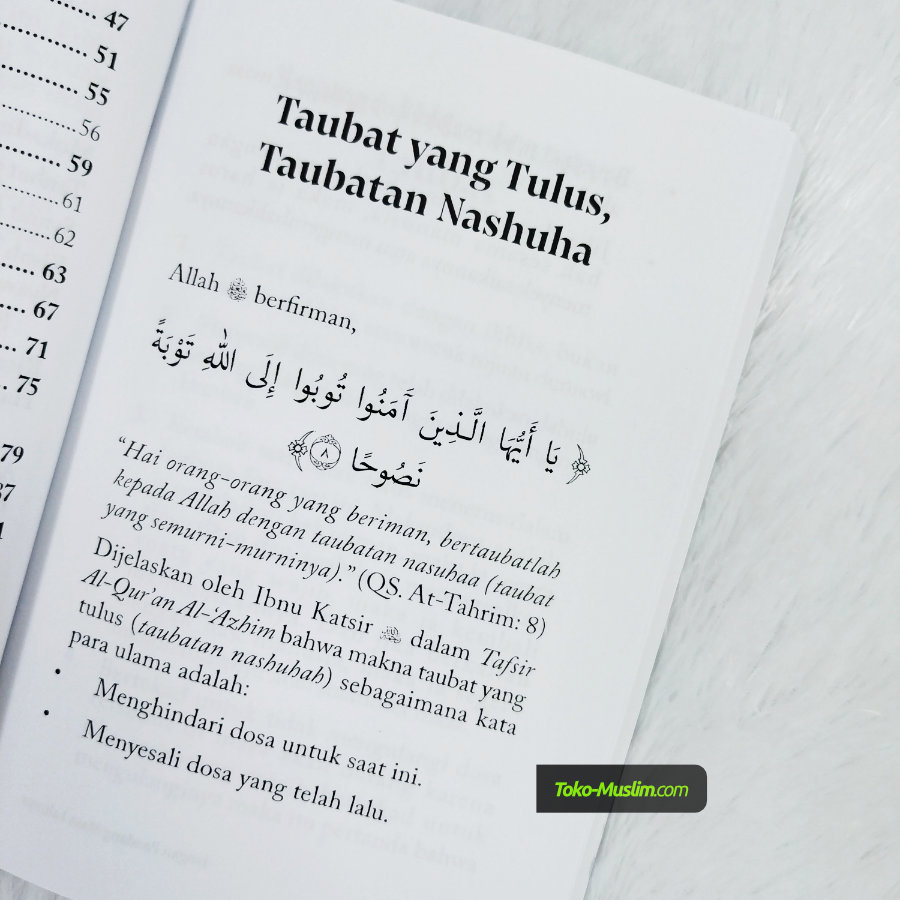 47
51
55
56
59
61
62
63
67
71
75
79
Taubat yang Tulus,
Taubatan Nashuha
Allah ﷻ berfirman,
﴿ يَا أَيُّهَا الَّذِينَ آمَنُوا تُوبُوا إِلَى اللهِ تَوْبَةً
نَصُوحًا ۝٨ ﴾
“Hai orang-orang yang beriman, bertaubatlah
kepada Allah dengan taubatan nasuhaa (taubat
yang semurni-murninya).” (QS. At-Tahrim: 8)
Dijelaskan oleh Ibnu Katsir dalam Tafsir
Al-Qur’an Al-‘Azhim bahwa makna taubat yang
tulus (taubatan nashuhah) sebagaimana kata
para ulama adalah:
• Menghindari dosa untuk saat ini.
• Menyesali dosa yang telah lalu.
Toko-Muslim.com